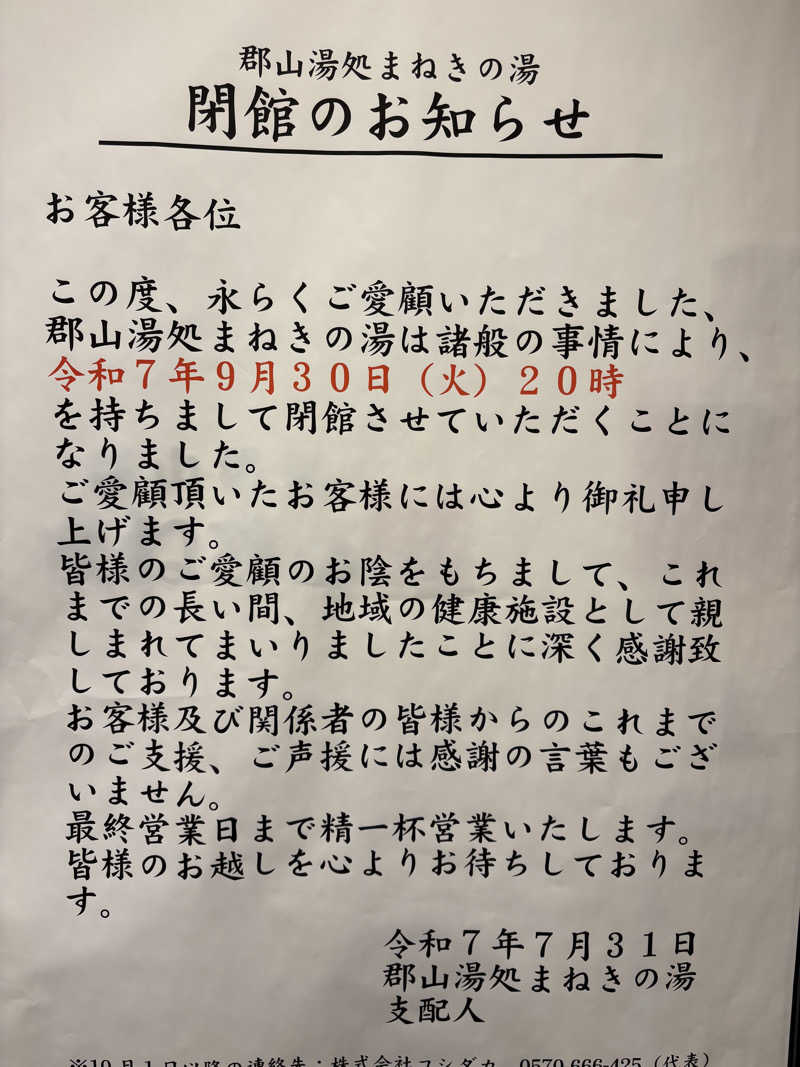 郡山湯処まねきの湯
閉館のお知らせ
お客様各位
この度、永らくご愛顧いただきました、
郡山湯処まねきの湯は諸般の事情により、
令和７年９月３０日（火）２０時
を持ちまして閉館させていただくことに
なりました。
ご愛顧頂いたお客様には心より御礼申し
上げます。
皆様のご愛顧のお陰をもちまして、これ
までの長い間、地域の健康施設として親
しまれてまいりましたことに深く感謝致
しております。
お客様及び関係者の皆様からのこれまで
のご支援、ご声援には感謝の言葉もござ
いません。
最終営業日まで精一杯営業いたします。
皆様のお越しを心よりお待ちしておりま
す。
令和７年７月３１日
郡山湯処まねきの湯
支配人
※10月１日以降の連絡先：株式会社コシダカ　0570-666-425（代表）